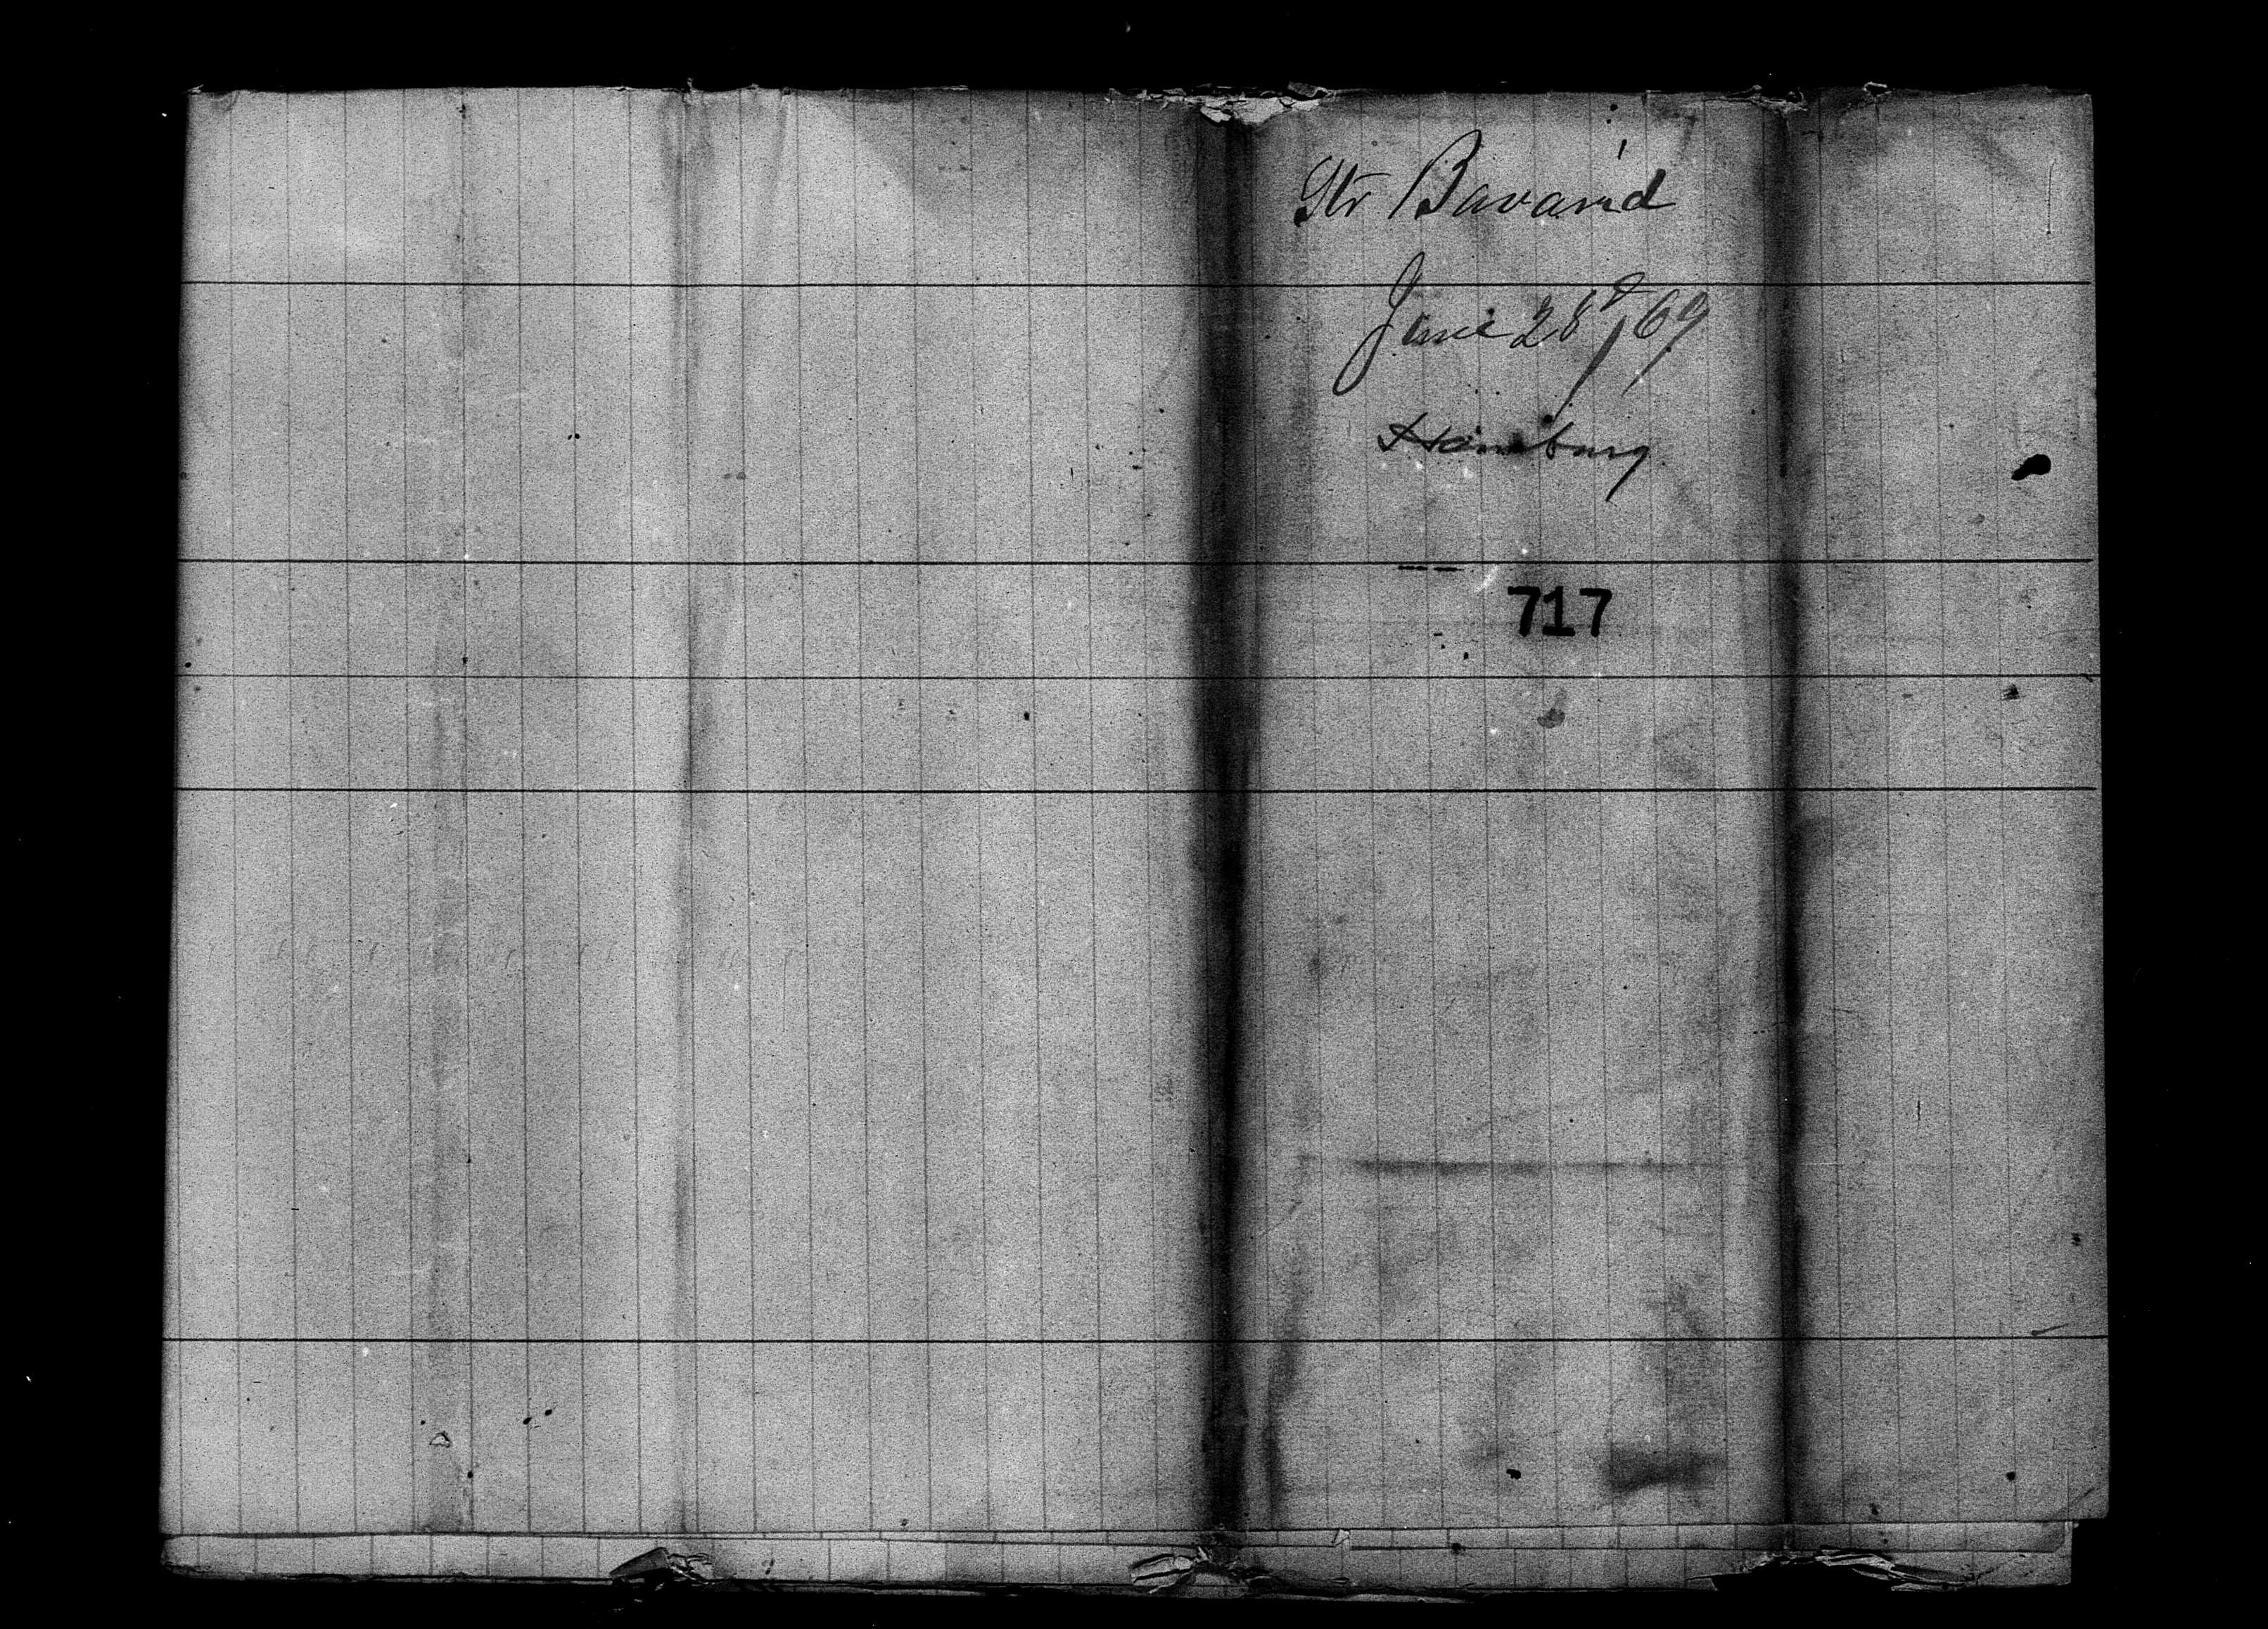 Str Bavaria
June 28th/69
Hamburg
717